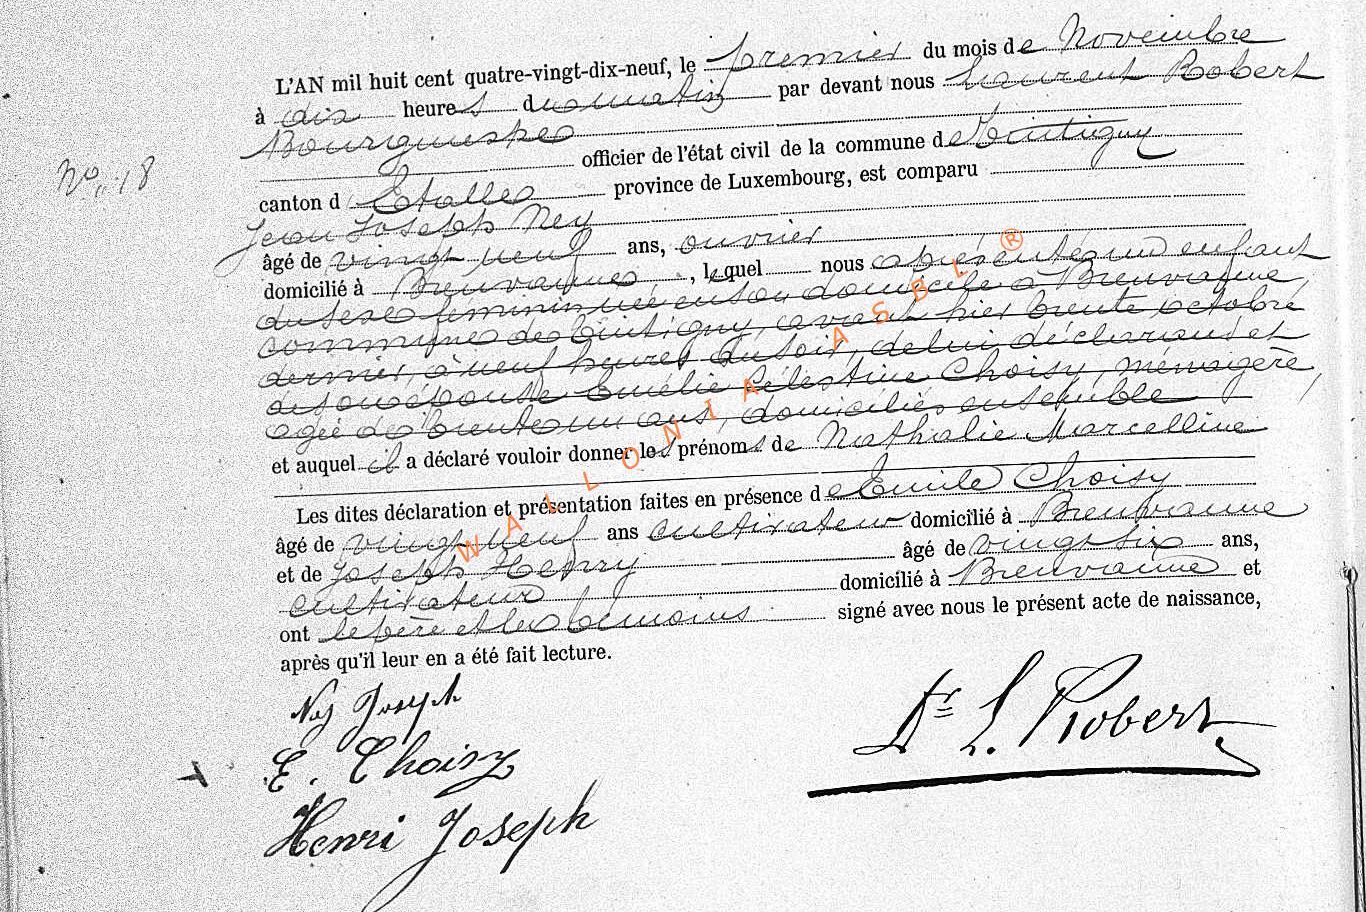 L'AN mil huit cent quatre-vingt-dix-neuf, le premier du mois de Novembre
à dix heures du matin par devant nous Laurent Robert
Bourgmestre officier de l'état civil de la commune de Tintigny
canton d'Etalle province de Luxembourg, est comparu
Jean Joseph Ney
âgé de vingt neuf ans, ouvrier
domicilié à Breuvanne, lequel nous a présenté un enfant
du sexe féminin née en son domicile à Breuvanne,
commune de Tintigny, avant hier trente octobre
dernier, à neuf heures du soir, de lui déclarant et
de son épouse Emélie Célestine Choisy, ménagère,
agée de trente un ans, domiciliés ensemble
et auquel il a déclaré vouloir donner les prénoms de Nathalie Marcelline
Les dites déclaration et présentation faites en présence de Emile Choisy
âgé de vingt neuf ans cultivateur domicilié à Breuvanne
et de Joseph Henry âgé de vingt six ans,
cultivateur domicilié à Breuvanne et
ont le père et les témoins signé avec nous le présent acte de naissance,
après qu'il leur en a été fait lecture.
No, 18
Ney Joseph
E. Choisy
Henri Joseph
Dr L. Robert.
WALLONIA ASBL ®